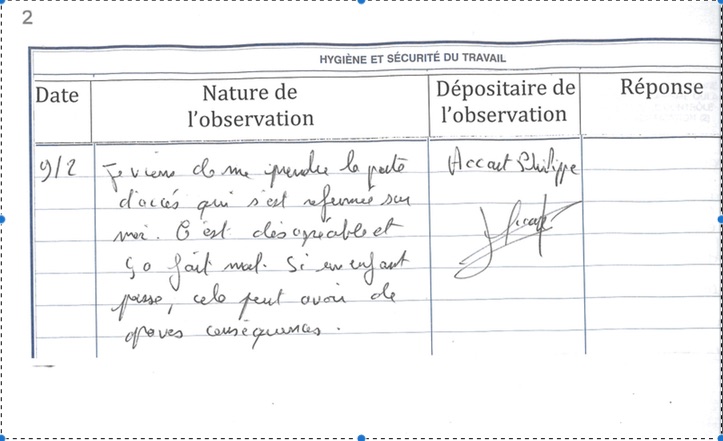 2
HYGIÈNE ET SÉCURITÉ DU TRAVAIL
Date
Nature de l'observation
Dépositaire de l'observation
Réponse
9/2
Je viens de me prendre la porte
d'accès qui s'est refermée sur
moi. C'est désagréable et
ça fait mal. Si un enfant
passe, cela peut avoir de
graves conséquences.
Accart Philippe